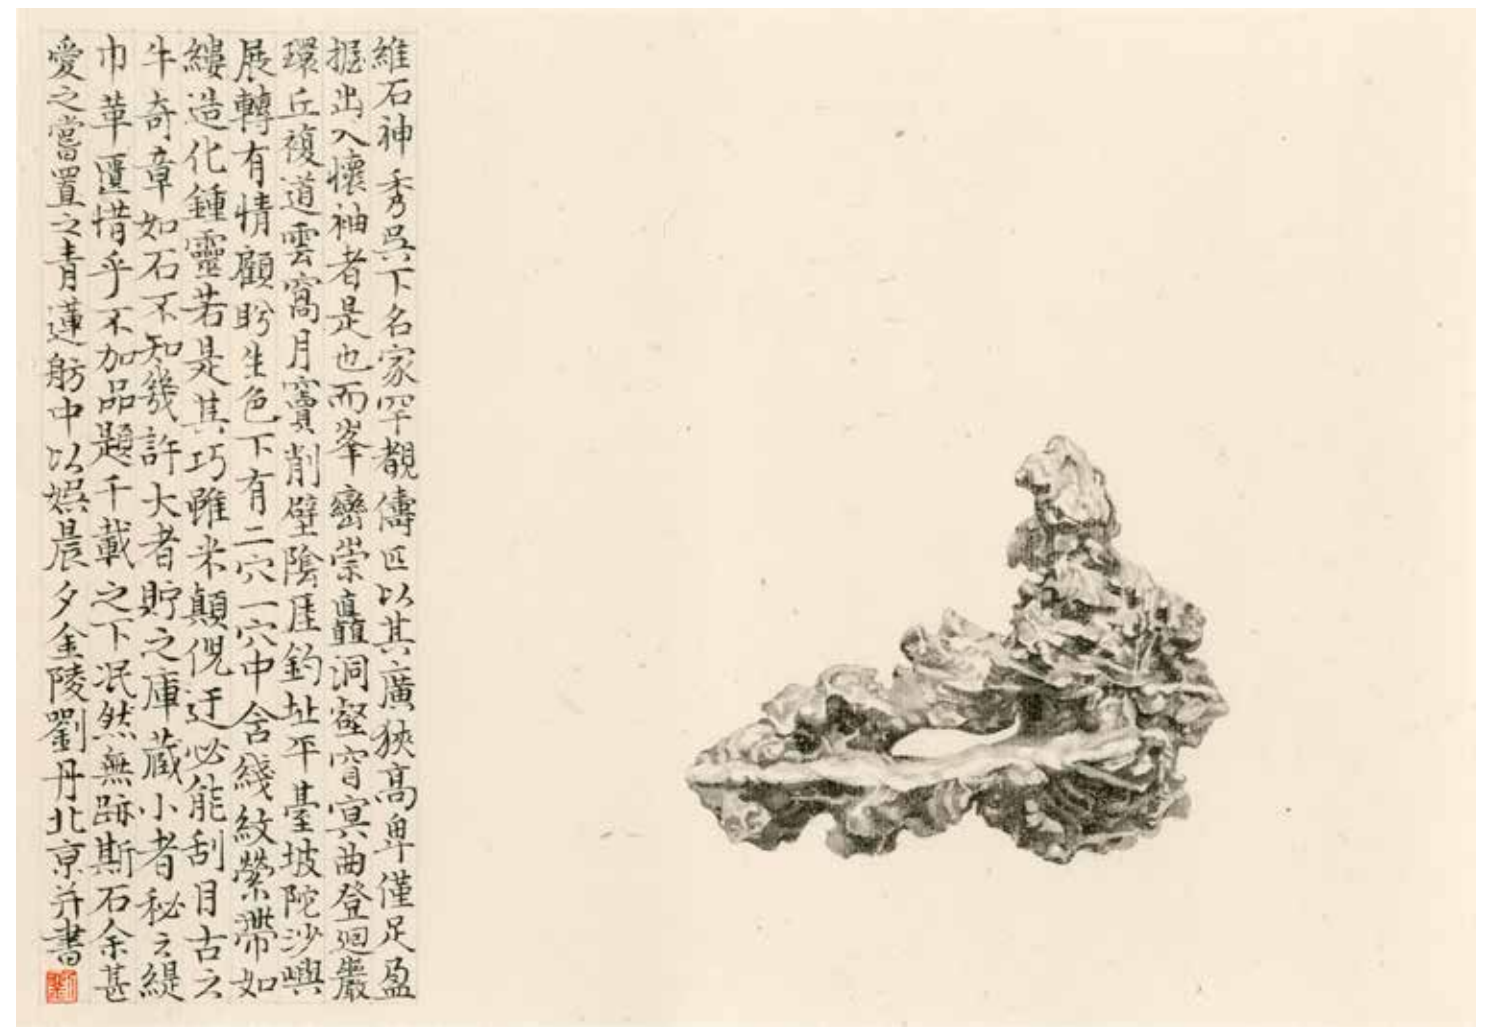 維石神秀吳下名家罕覯儔匹以其廣狹高卑僅足盈
握出入懷袖者是也而峯巒崇矗洞壑窅冥曲登迴巖
環丘複道雲窩月竇削壁陰厓釣址平臺坡陀沙嶼
展轉有情顧盻生色下有二穴一穴中含綫紋縈帶如
縷造化鍾靈若是其巧雖米顛倪迂必能刮目古之
牛奇章如石不知幾許大者貯之庫藏小者秘之緹
巾革匱惜乎不加品題千載之下泯然無跡斯石余甚
愛之嘗置之青蓮舫中以娛晨夕金陵劉丹北京并書